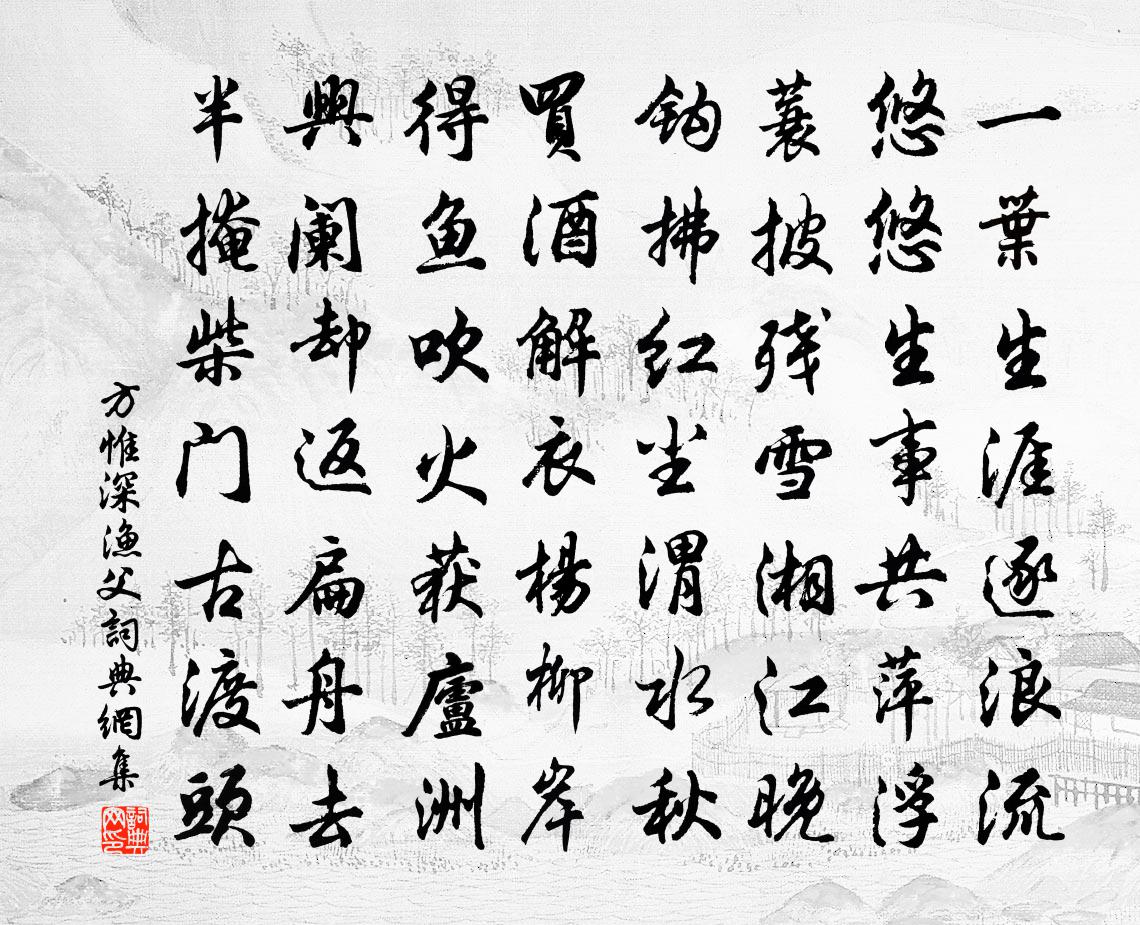 一葉生涯逐浪流
悠悠生事共萍浮
蓑披残雪湘江晚
鈎拂红尘渭水秋
買酒解衣楊柳岸
得魚吹火荻廬洲
興阑却返扁舟去
半掩柴门古渡頭
方惟深漁父詞典網集
詞典网印